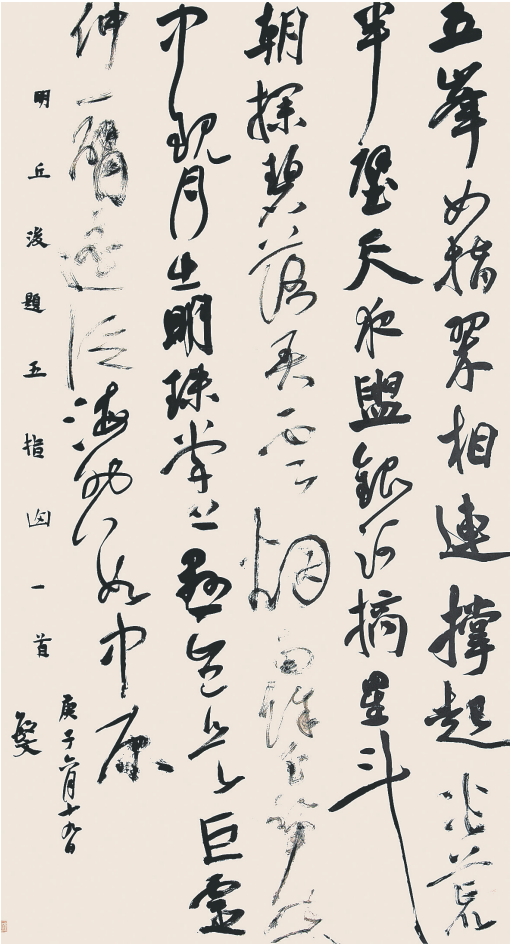 五峯如指翠相連撐起炎荒
半壁天夜盥銀河摘星斗
朝探碧落弄雲烟雨餘玉笋空
中現月出明珠掌上懸豈是巨靈
伸一臂遙從海外數中原
明丘浚題五指山一首
庚子六月十九日